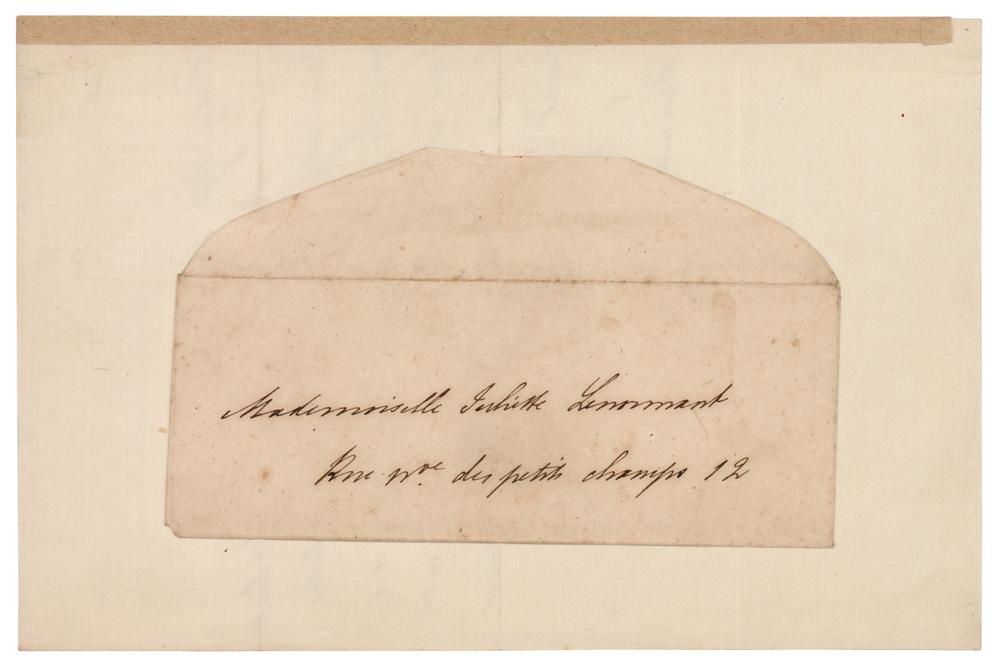 Mademoiselle Juliette Lenormant
Rue nve. des petits champs 12